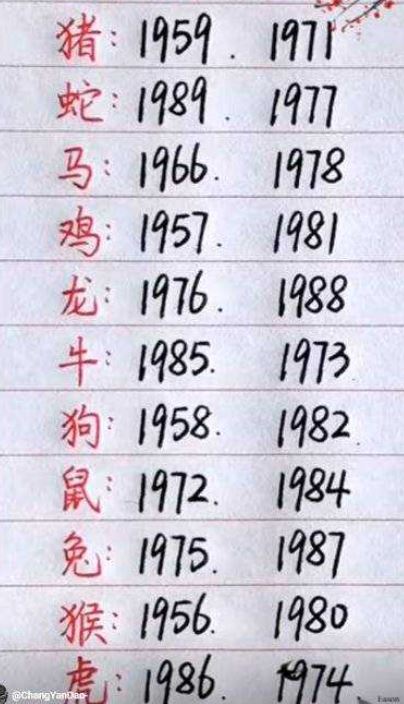 猪: 1959. 1971
蛇: 1989. 1977
马: 1966. 1978
鸡: 1957. 1981
龙: 1976. 1988
牛: 1985. 1973
狗: 1958. 1982
鼠: 1972. 1984
兔: 1975. 1987
猴: 1956. 1980
虎: 1986. 1974
@ChangYanDao-
Eason